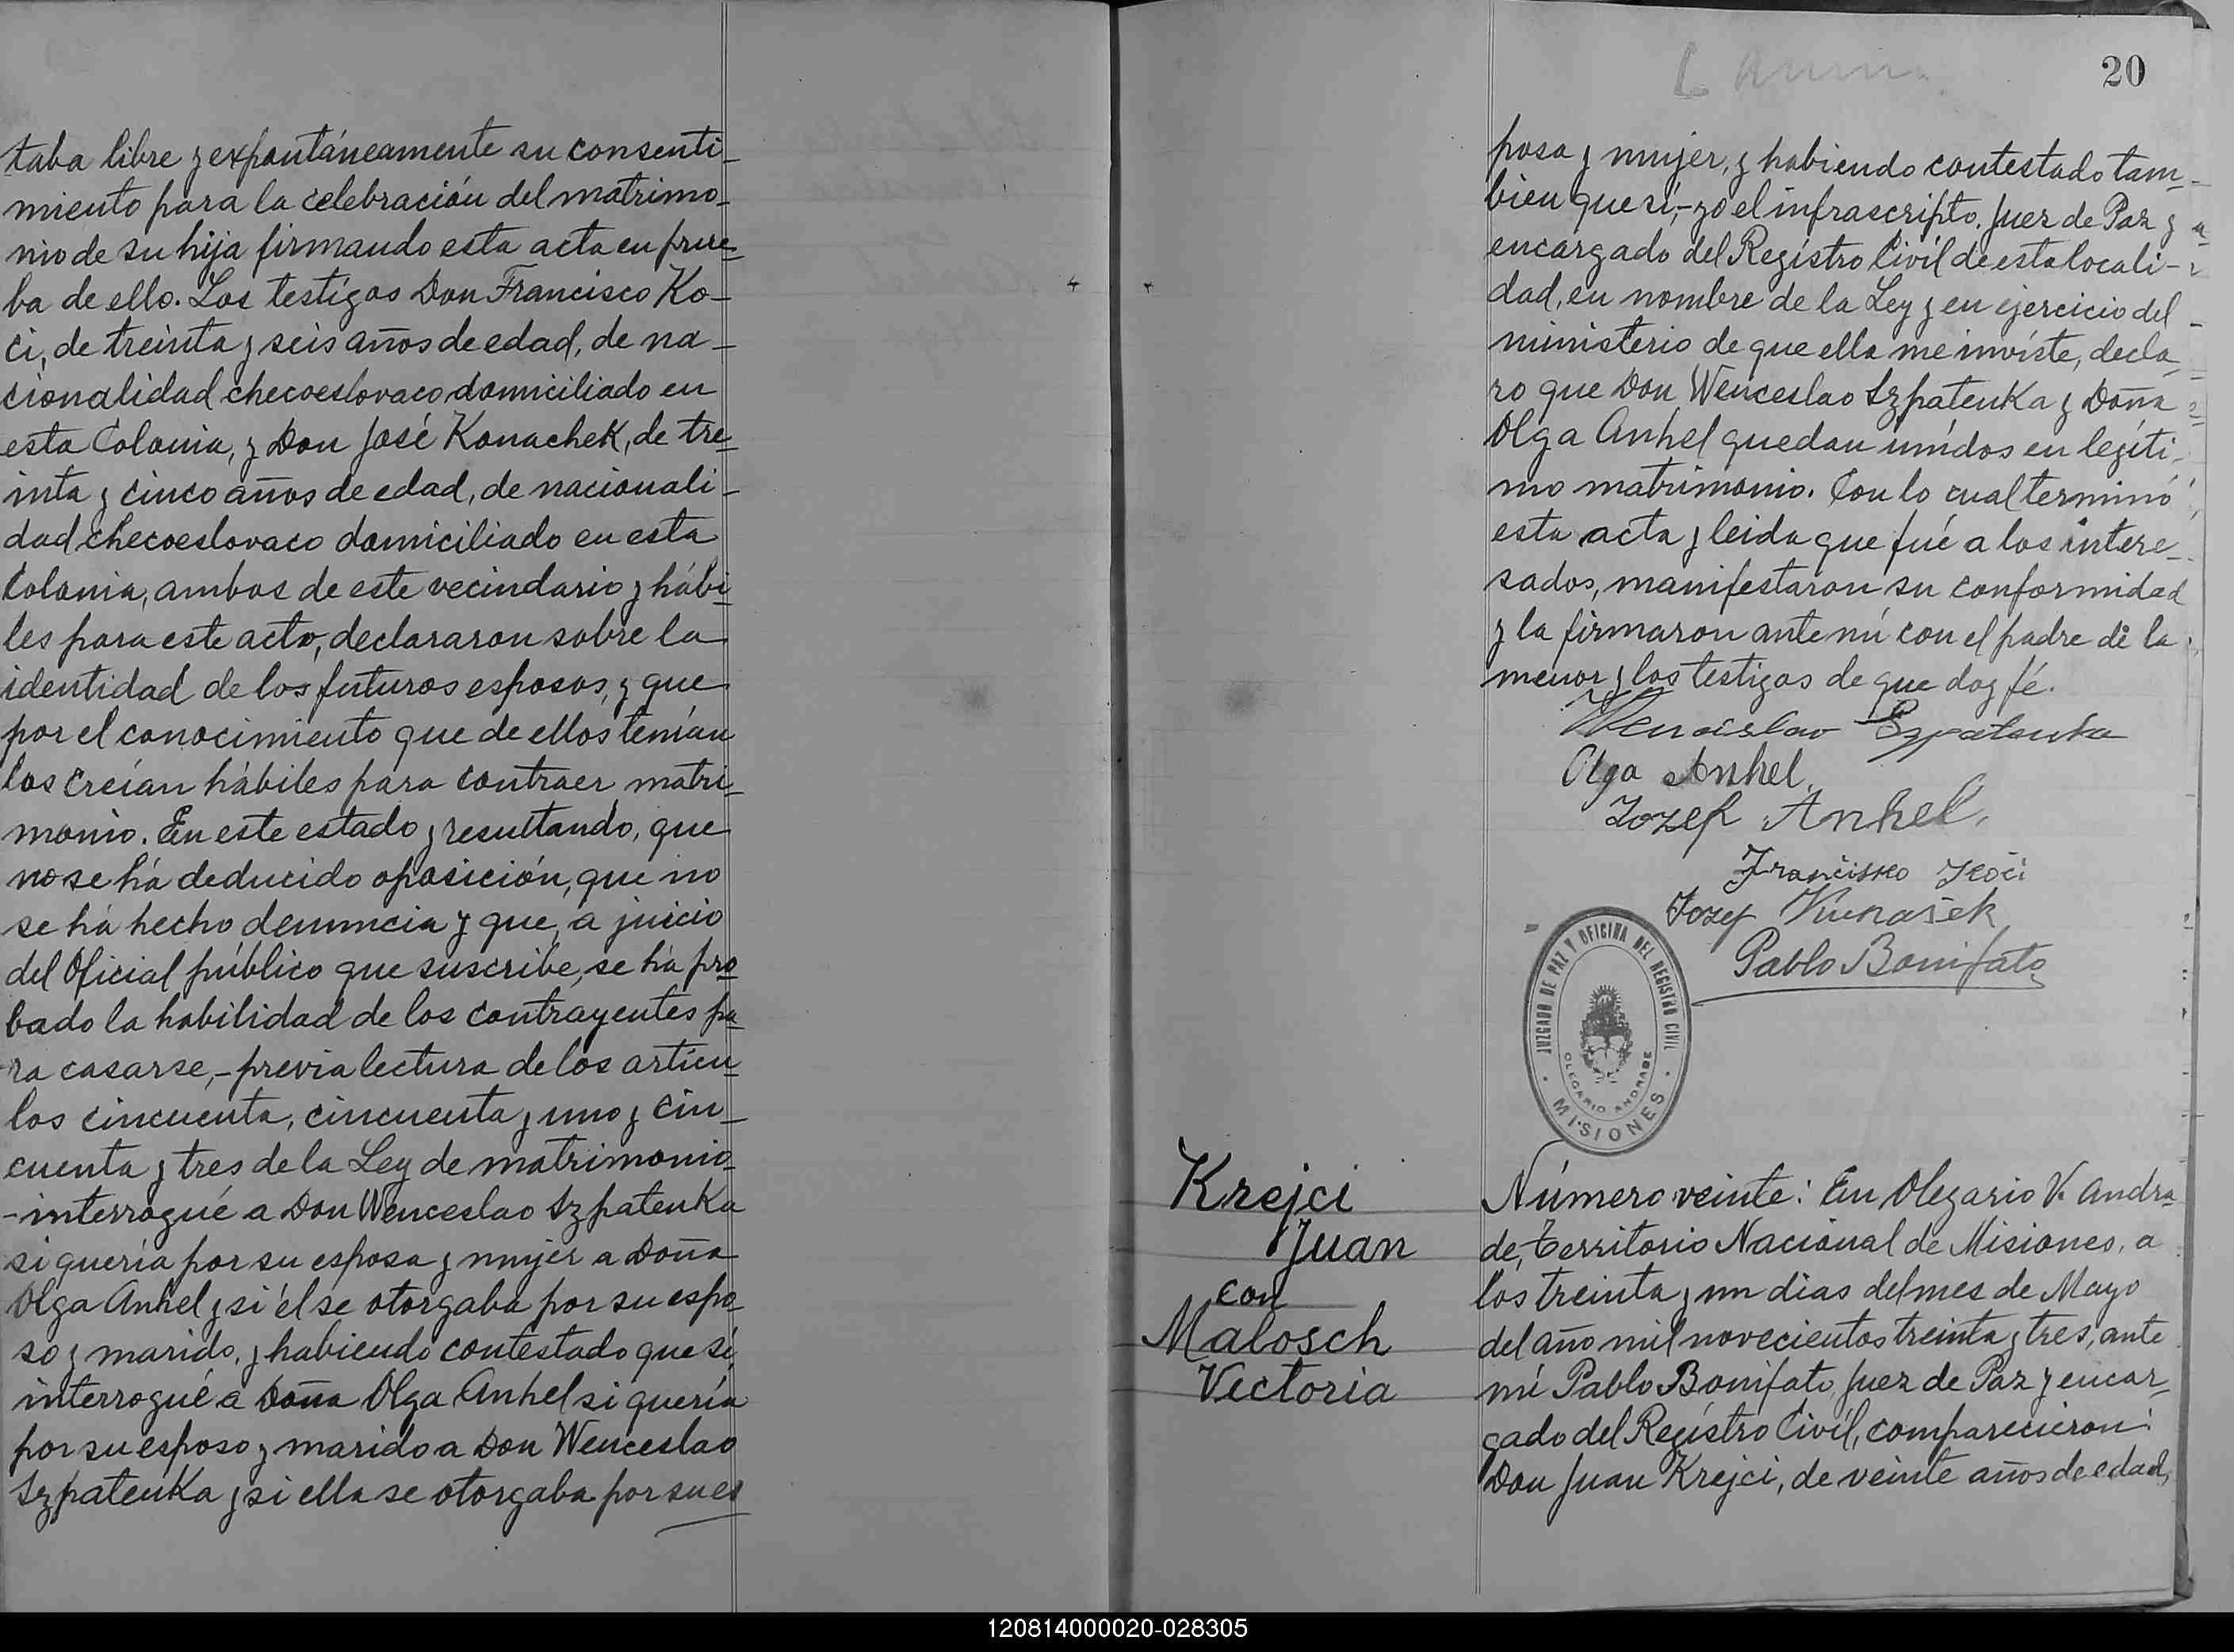 taba libre y expontáneamente su consenti-
miento para la celebración del matrimo-
nio de su hija firmando esta acta en prue-
ba de ello. Los testigos Don Francisco Ko-
ci, de treinta y seis años de edad, de na-
cionalidad checoeslovaco domiciliado en
esta Colonia, y Don José Konachek, de tre-
inta y cinco años de edad, de nacionali-
dad checoeslovaco domiciliado en esta
Colonia, ambos de este vecindario y hábi-
les para este acto, declararon sobre la
identidad de los futuros esposos, y que
por el conocimiento que de ellos tenían
los creían hábiles para contraer matri-
monio. En este estado y resultando, que
no se há deducido oposición, que no
se há hecho denuncia y que, a juicio
del Oficial público que suscribe, se há pro-
bado la habilidad de los contrayentes pa-
ra casarse,-previa lectura de los artícu-
los cincuenta, cincuenta y uno y cin-
cuenta y tres de la Ley de matrimonio
-interrogué a Don Wenceslao Szpatenka
si quería por su esposa y mujer a Doña
Olga Anhel y si él se otorgaba por su espo-
so y marido, y habiendo contestado que sí,
interrogué a Doña Olga Anhel si quería
por su esposo y marido a Don Wenceslao
Szpatenka y si ella se otorgaba por su es
20
posa y mujer, y habiendo contestado tam-
bien que sí,-yo el infrascripto, Juez de Paz y
encargado del Registro Civil de esta locali-
dad, en nombre de la Ley y en ejercicio del
ministerio de que ella me inviste, decla-
ro que Don Wenceslao Szpatenka y Doña
Olga Anhel quedan unidos en legíti-
mo matrimonio. Con lo cual terminó
esta acta y leida que fué a los intere-
sados, manifestaron su conformidad
y la firmaron ante mí con el padre de la
menor y los testigos de que doy fé.
Wenceslao Szpatenka
Olga Anhel.
Jozef Anhel.
Francisko Koči
Jozef Kunašek
Pablo Bonifato
JUZGADO DE PAZ Y OFICINA DEL REGISTRO CIVIL
OLEGARIO ANDRADE
· MISIONES ·
Krejci
Juan
con
Malosch
Victoria
Número veinte: En Olegario V. Andra-
de, Territorio Nacional de Misiones, a
los treinta y un dias del mes de Mayo
del año mil novecientos treinta y tres, ante
mí Pablo Bonifato, Juez de Paz y encar-
gado del Registro Civil, comparecieron:
Don Juan Krejci, de veinte años de edad,
120814000020-028305